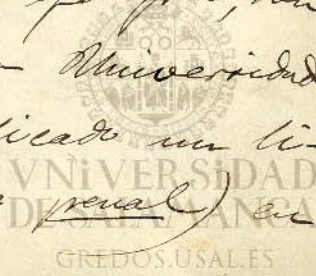 Universidad
licado un li-
penal) en
VNiVERSiDAD
DE SALAMANCA
GREDOS.USAL.ES